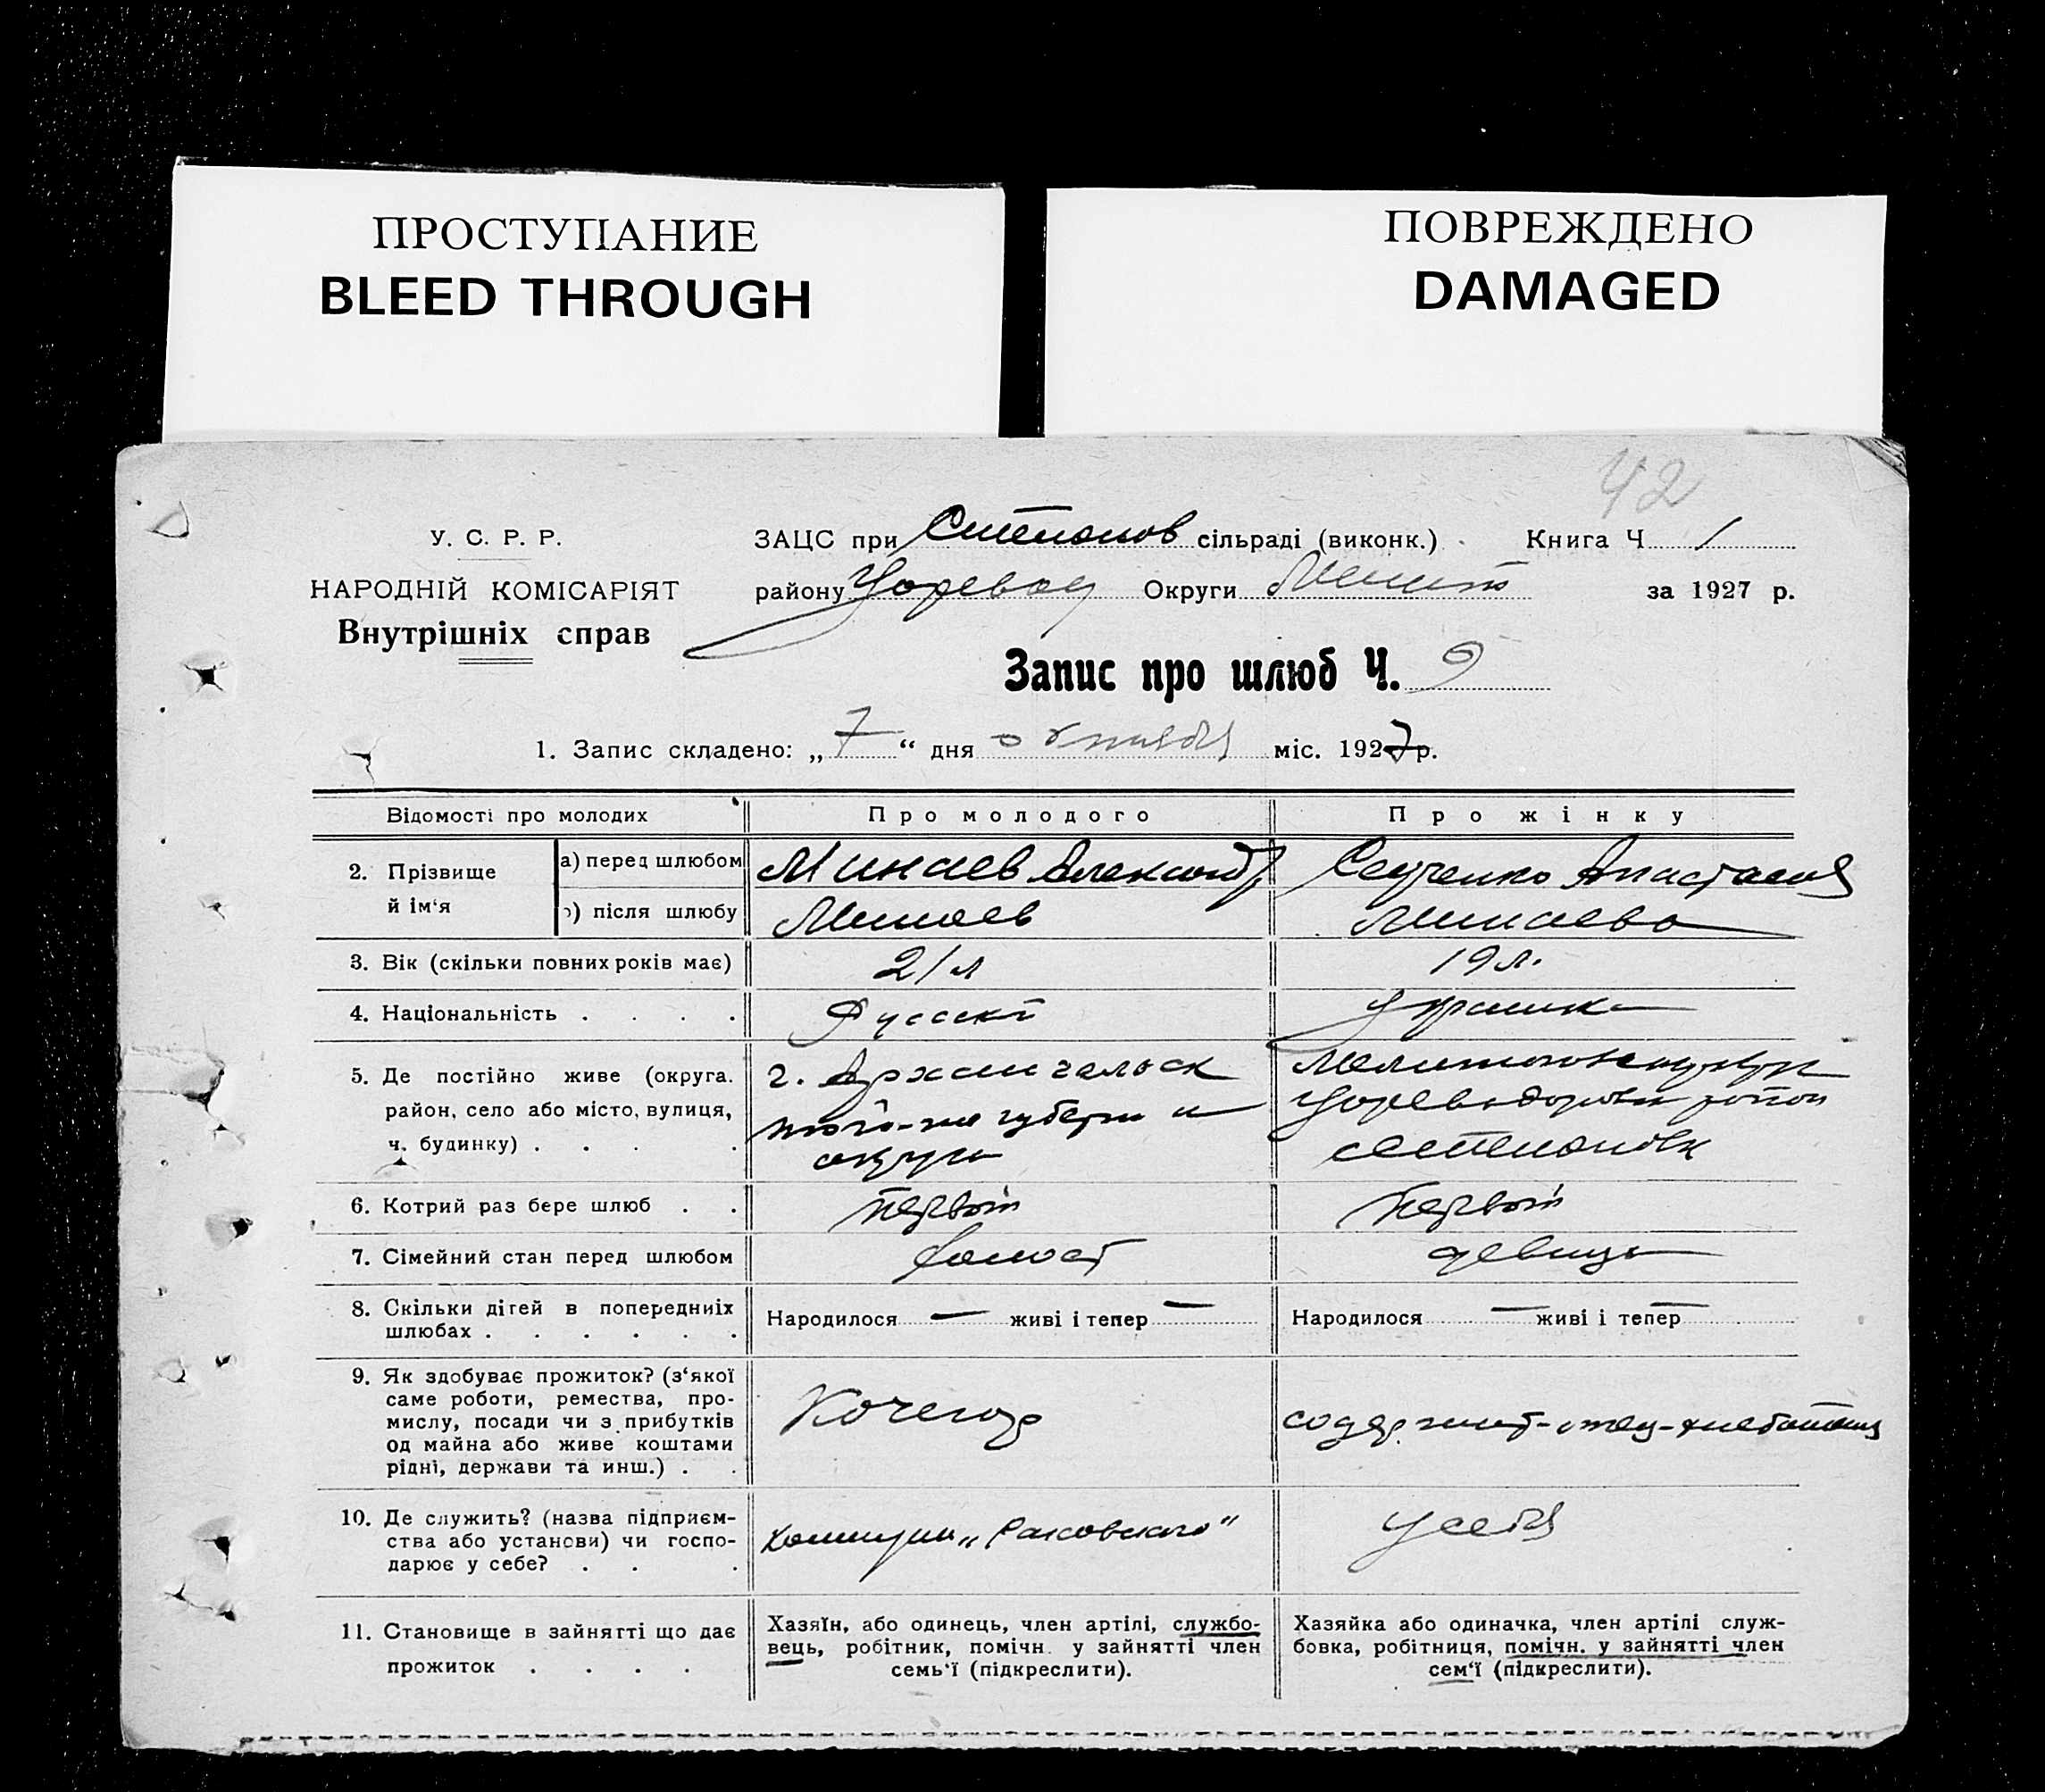 ПРОСТУПАНИЕ
BLEED THROUGH
ПОВРЕЖДЕНО
DAMAGED
42
У. С. Р. Р.
НАРОДНІЙ КОМІСАРІЯТ
Внутрішніх справ
ЗАЦС при Степанов сільраді (виконк.) Книга Ч 1
району Округи Мелит за 1927 р.
Запис про шлюб Ч. 9
1. Запис складено: „7“ дня октября міс. 1927 р.
Відомості про молодих Про молодого Про жінку
2. Прізвище й ім‘я
а) перед шлюбом Минаев Александр Анастасия
б) після шлюбу Минаев Минаева
3. Вік (скільки повних років має) 21 л 19 л.
4. Національність . . . . Русскі Украинка
5. Де постійно живе (округа. район, село або місто, вулиця, ч. будинку) . . . .
г. Архангельск
того-же губерни и
округа
район
Степановк
6. Котрий раз бере шлюб . . первый первый
7. Сімейний стан перед шлюбом холост девица
8. Скільки дітей в попередниіх шлюбах . . . . . .
Народилося — живі і тепер — Народилося — живі і тепер —
9. Як здобуває прожиток? (з‘якої
саме роботи, ремества, про-
мислу, посади чи з прибутків
од майна або живе коштами
рідні, держави та инш.) . .
Кочегар
содержит-отец-хлебопашец
10. Де служить? (назва підприєм-
ства або установи) чи госпо-
дарює у себе? . . .
Коммуна „Раковского“
у себя
11. Становище в зайнятті що дає
прожиток . . . .
Хазяїн, або одинець, член артілі, службо-
вець, робітник, помічн. у зайнятті член
семь‘ї (підкреслити).
Хазяйка або одиначка, член артілі служ-
бовка, робітниця, помічн. у зайнятті член
сем‘ї (підкреслити).